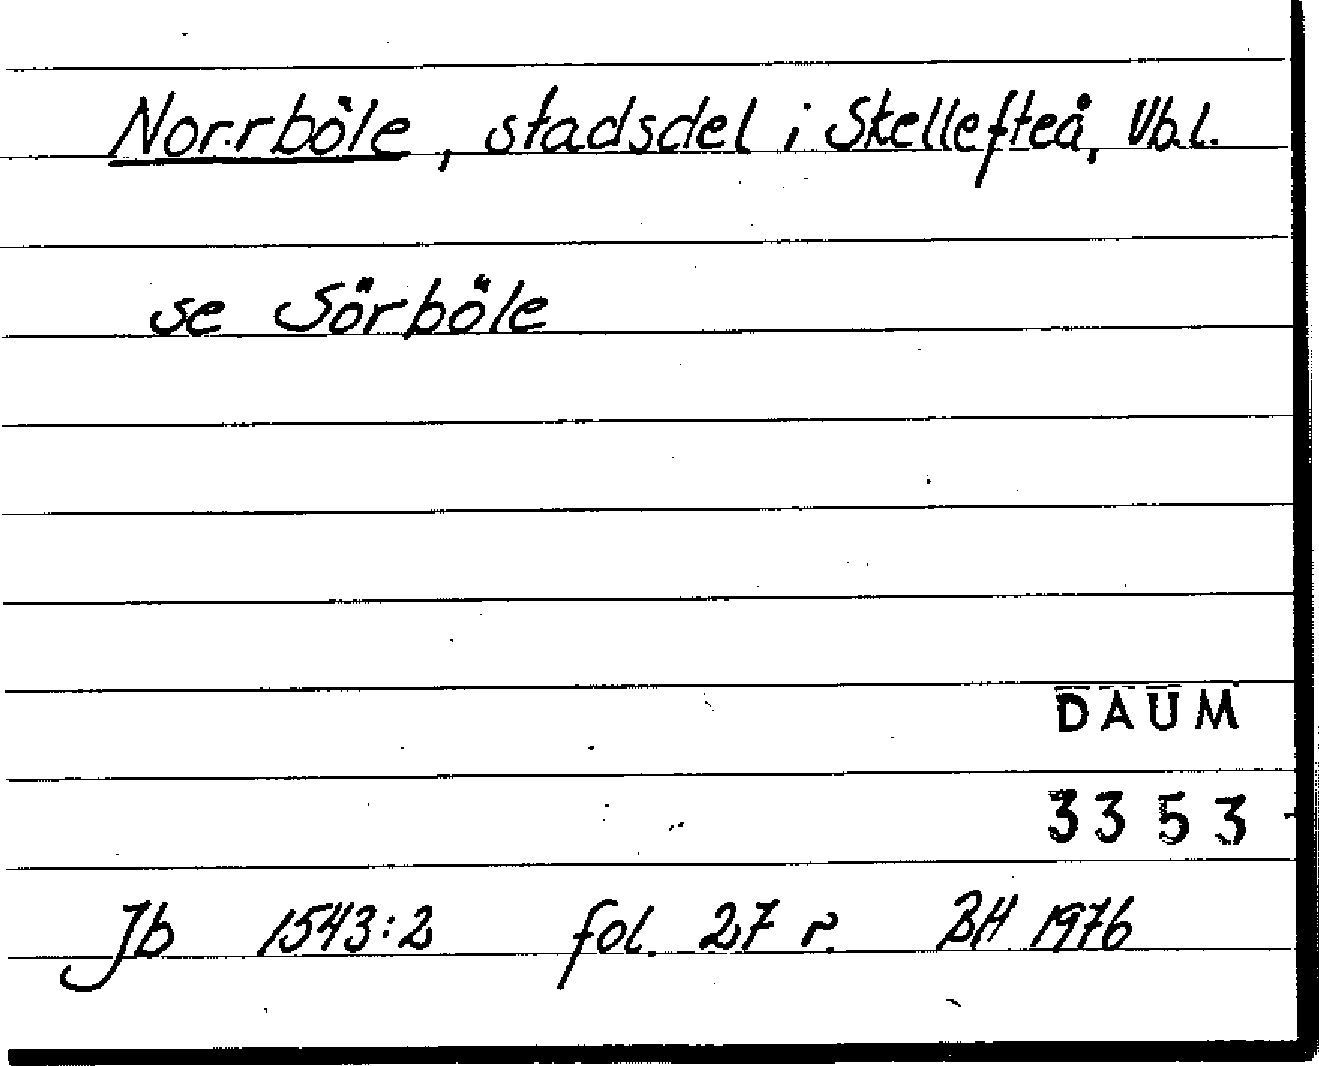 Norrböle, stadsdel i Skellefteå, Vb.l.
se Sörböle
DAUM
3353
Jb 1543:2 fol. 27 r. BH 1976